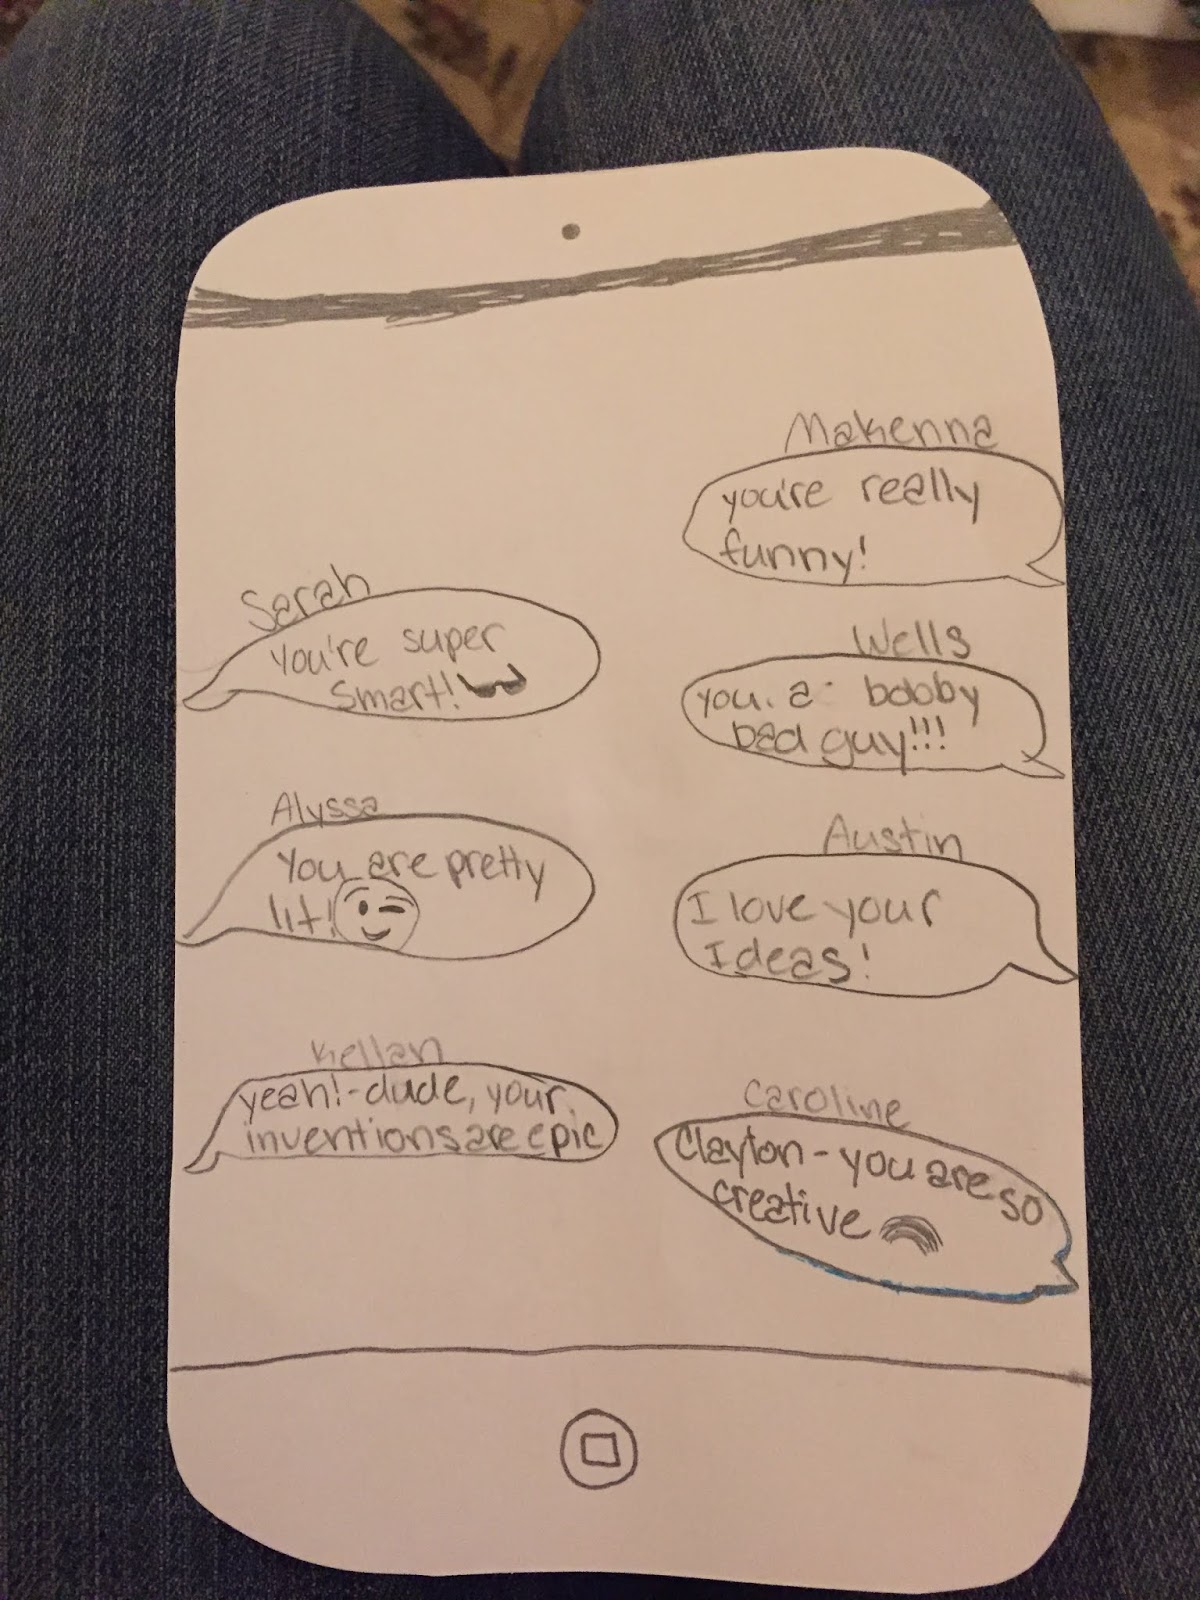 Makenna
you're really
funny!
Sarah
You're super
Smart!
Wells
you. a - booby
bad guy!!!
Alyssa
You are pretty
lit!
Austin
I love your
Ideas!
Kellan
yeah!-dude, your
inventions are epic
Caroline
Clayton - you are so
creative